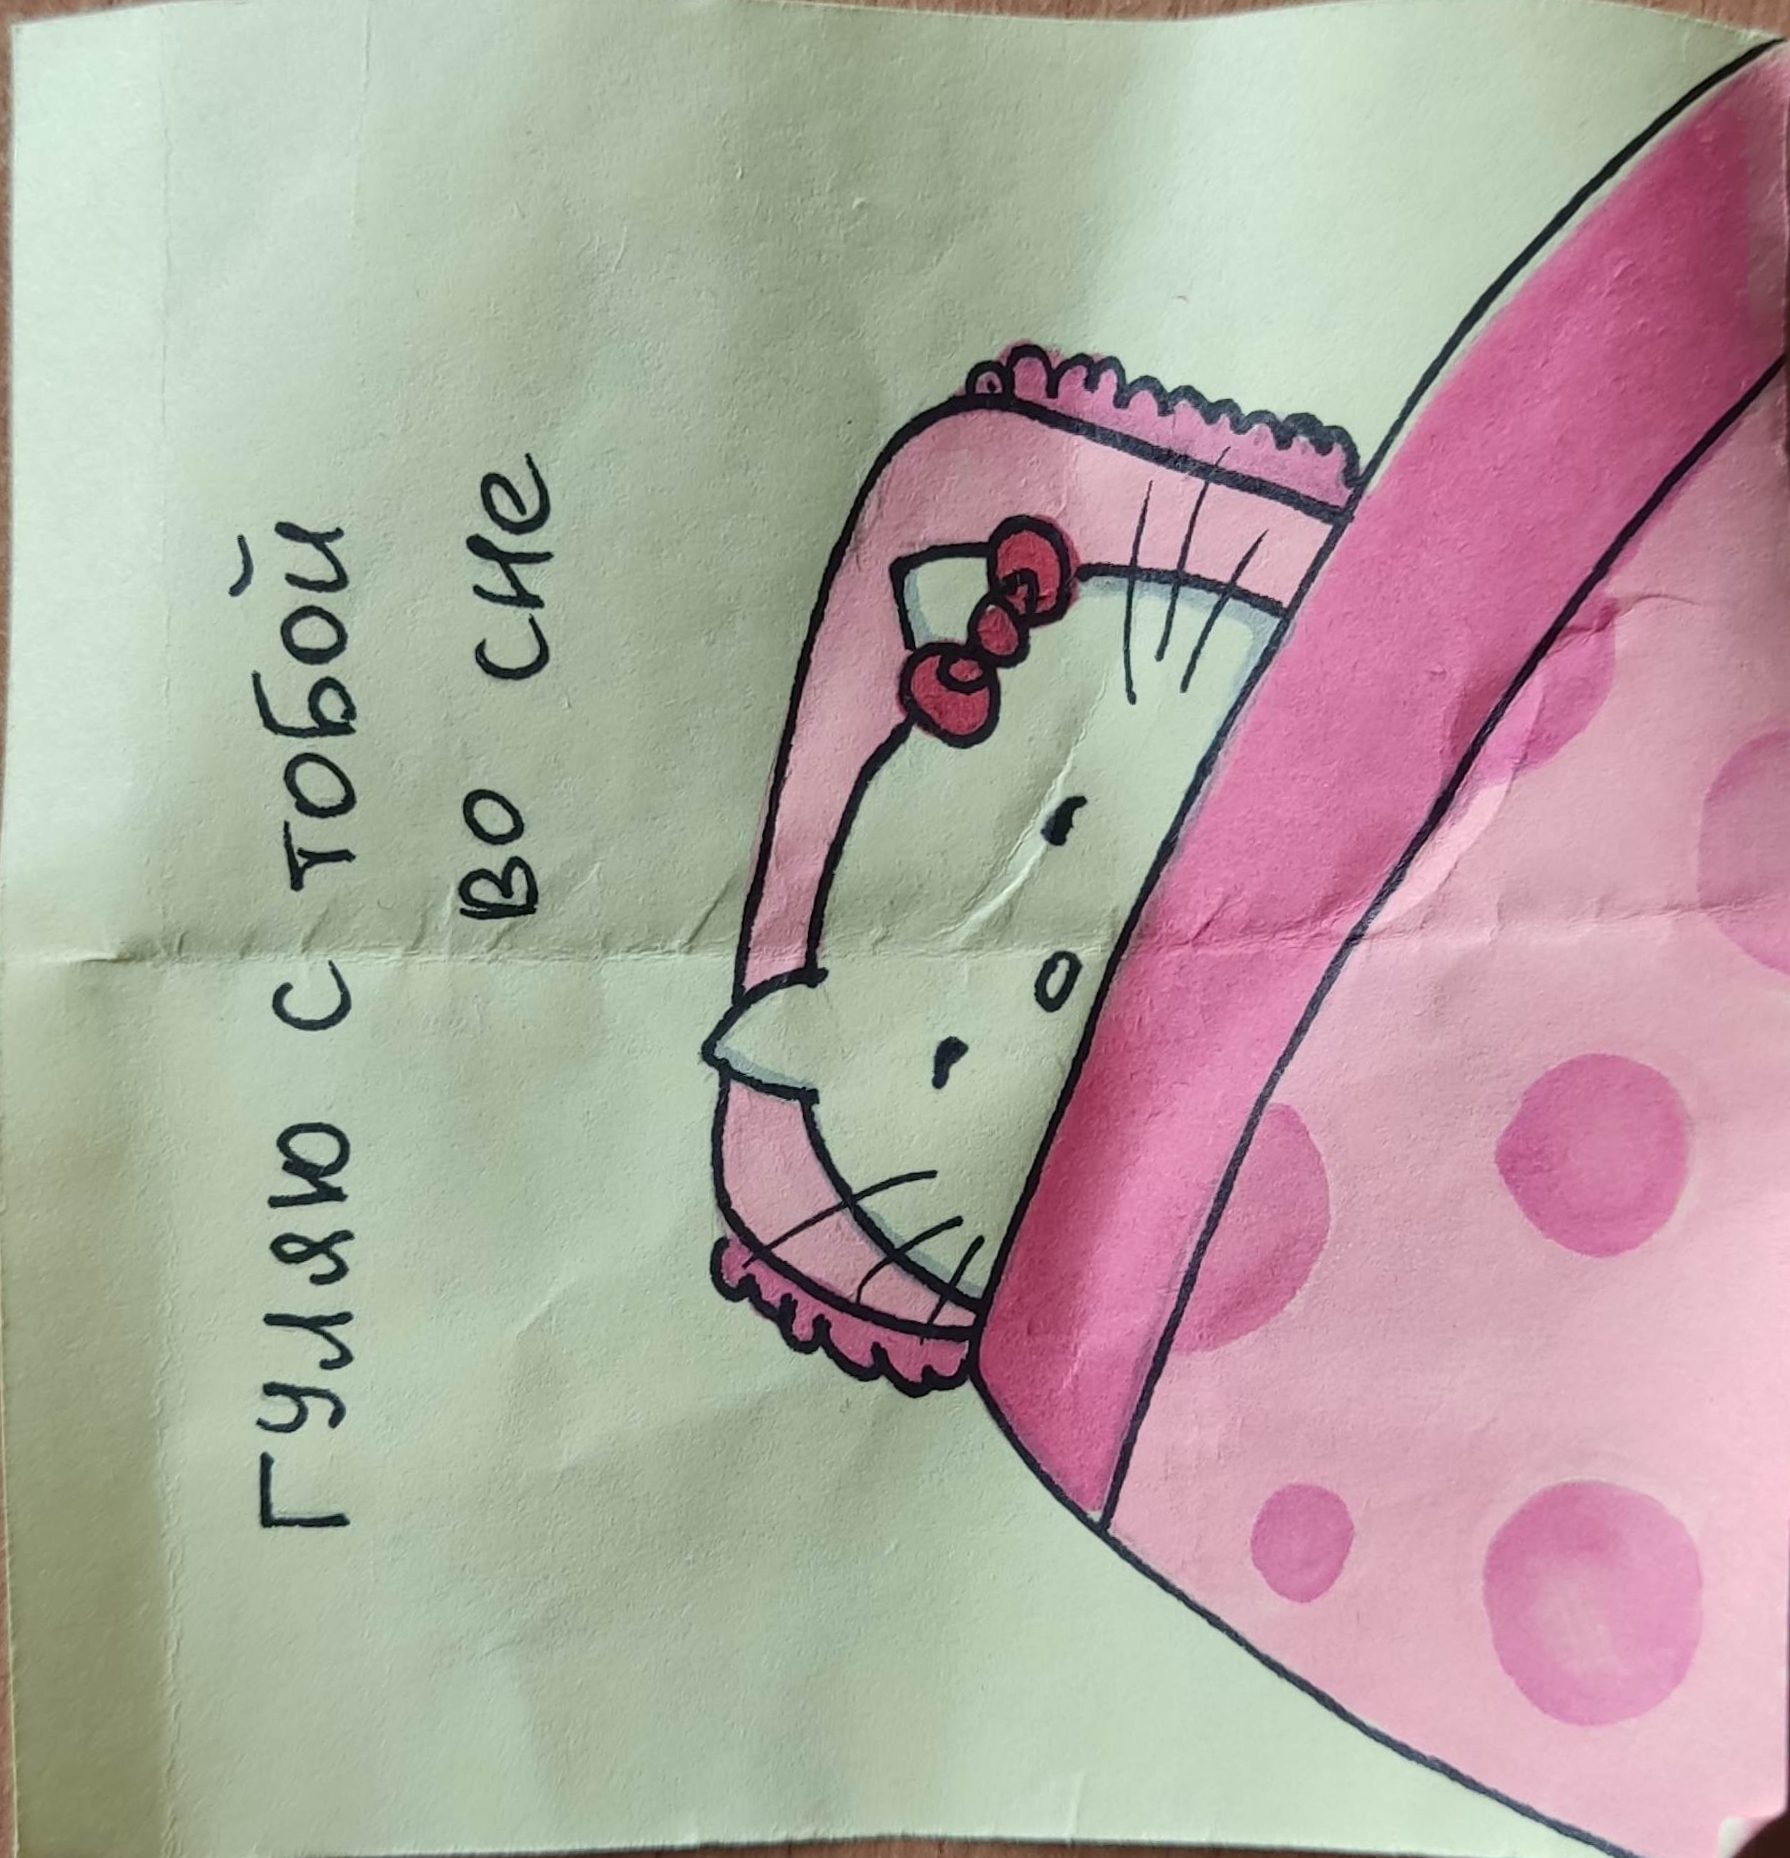 гуляю с тобой
во сне